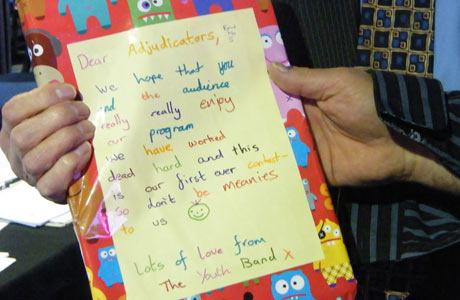 Dear Adjudicators,
We hope that you
and the audience
really really enjoy
our program
we have worked
dead hard and this
is our first ever contest-
so don't be meanies
to us
Lots of Love from
The Youth Band X